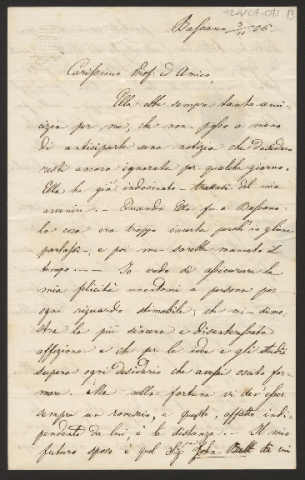 Bassano 3/11 66.
Carissimo Prof. ed Amico,
Ella ebbe sempre tanta ami-
cizia per me, che non posso a meno
di anticiparle una notizia che desidero
resti ancora ignorata per qualche giorno.
Ella ha già indovinato trattasi del mio
avvenire. — Quando Ella fu a Bassano
la cosa era troppo incerta perch'io gliene
parlassi, e poi me sarebbe mancato il
tempo. — Io credo di assicurare la
mia felicità unendomi a persona per
ogni riguardo stimabile, che mi dimo-
stra la più sincera e disinteressata
affezione e che per le idee e gli studii
supera ogni desiderio che avessi osato for-
mare. Ma nella fortuna vi dev'esser
sempre un rovescio, e questo, affatto indi-
pendente da lui, è la distanza... Il mio
futuro sposo è quel Sig. John Ball di cui